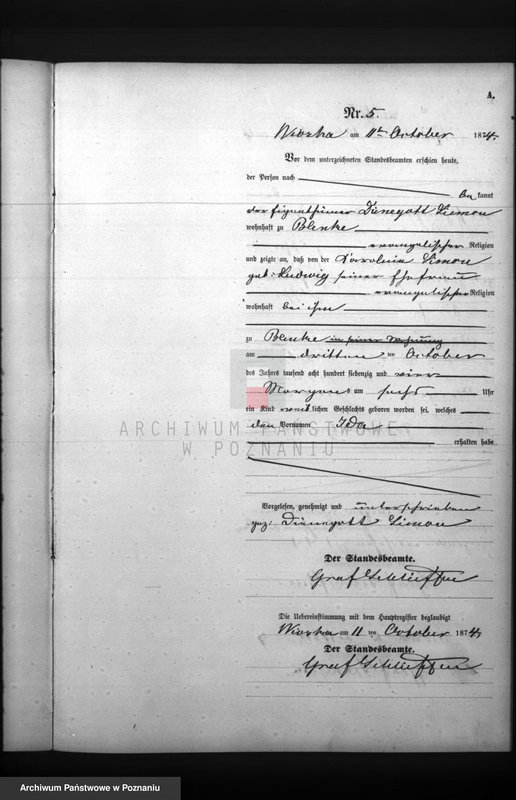 A.
Nr. 5.
Wioska am 11ten October 1874.
Vor dem unterzeichneten Standesbeamten erschien heute,
der Person nach
bekannt
der Eigenthümer Dienegott Simon
wohnhaft zu Blenke
evangelischer Religion
und zeigte an, daß von der Dorothea Simon
geb. Ludwig seiner Ehefrau
evangelischer Religion
wohnhaft bei ihm
zu Blenke in seiner Wohnung
am dritten ten October
des Jahres tausend acht hundert siebenzig und vier
Morgens um sechs Uhr
ein Kind weiblichen Geschlechts geboren worden sei, welches
den Vornamen Ida
erhalten habe
ARCHIWUM PAŃSTWOWE
W POZNANIU
Vorgelesen, genehmigt und unterschrieben
gez. Dienegott Simon
Der Standesbeamte.
Graf Schlieffen
Die Uebereinstimmung mit dem Hauptregister beglaubigt
Wioska am 11 ten October 1874.
Der Standesbeamte.
Graf Schlieffen
Archiwum Państwowe w Poznaniu